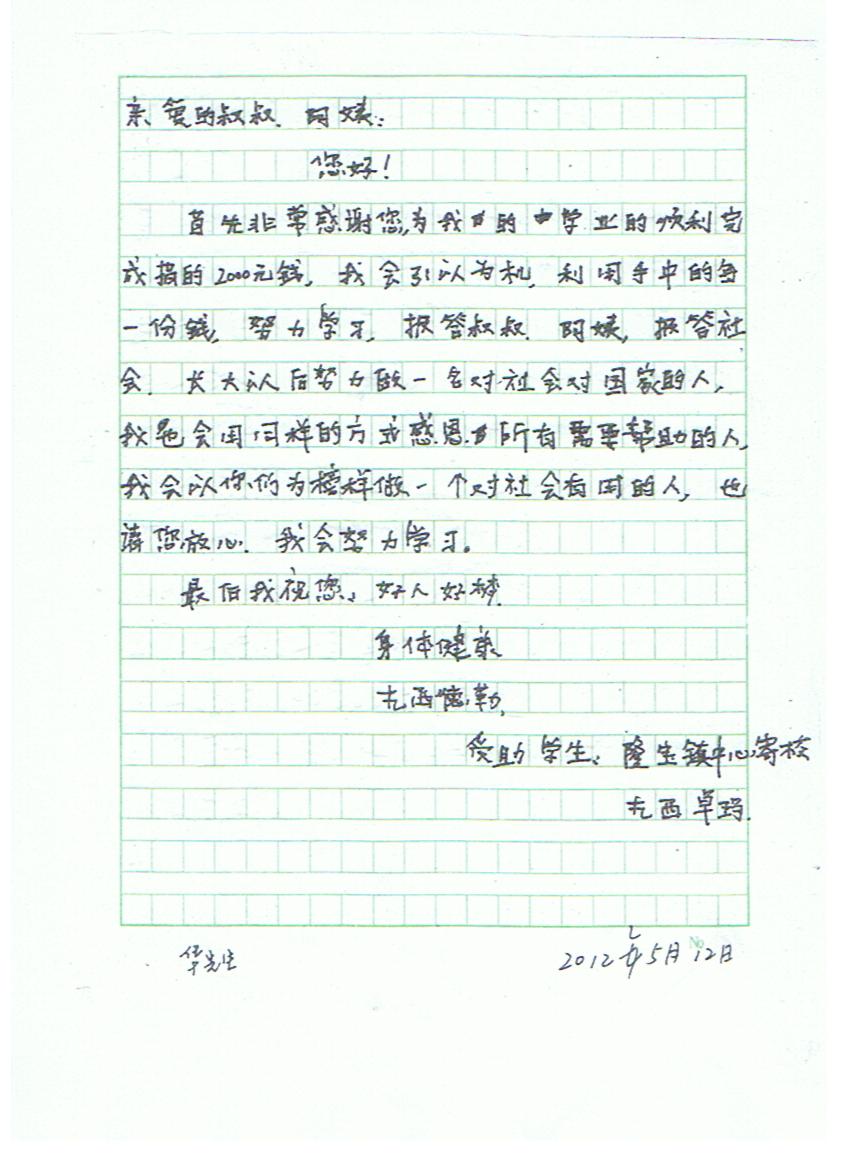 亲爱的叔叔、阿姨：
您好！
首先非常感谢您，为我的中学业的顺利完
成捐的2000元钱，我会引以为机，利用手中的每
一份钱，努力学习，报答叔叔、阿姨，报答社
会，长大以后努力做一名对社会对国家的人，
我也会用同样的方式感恩所有需要帮助的人，
我会以你们为榜样做一个对社会有用的人，也
请您放心，我会努力学习。
最后我祝您：好人好梦
身体健康
扎西德勒，
受助学生：隆宝镇中心寄校
扎西卓玛.
华先生
2012年5月12日
No